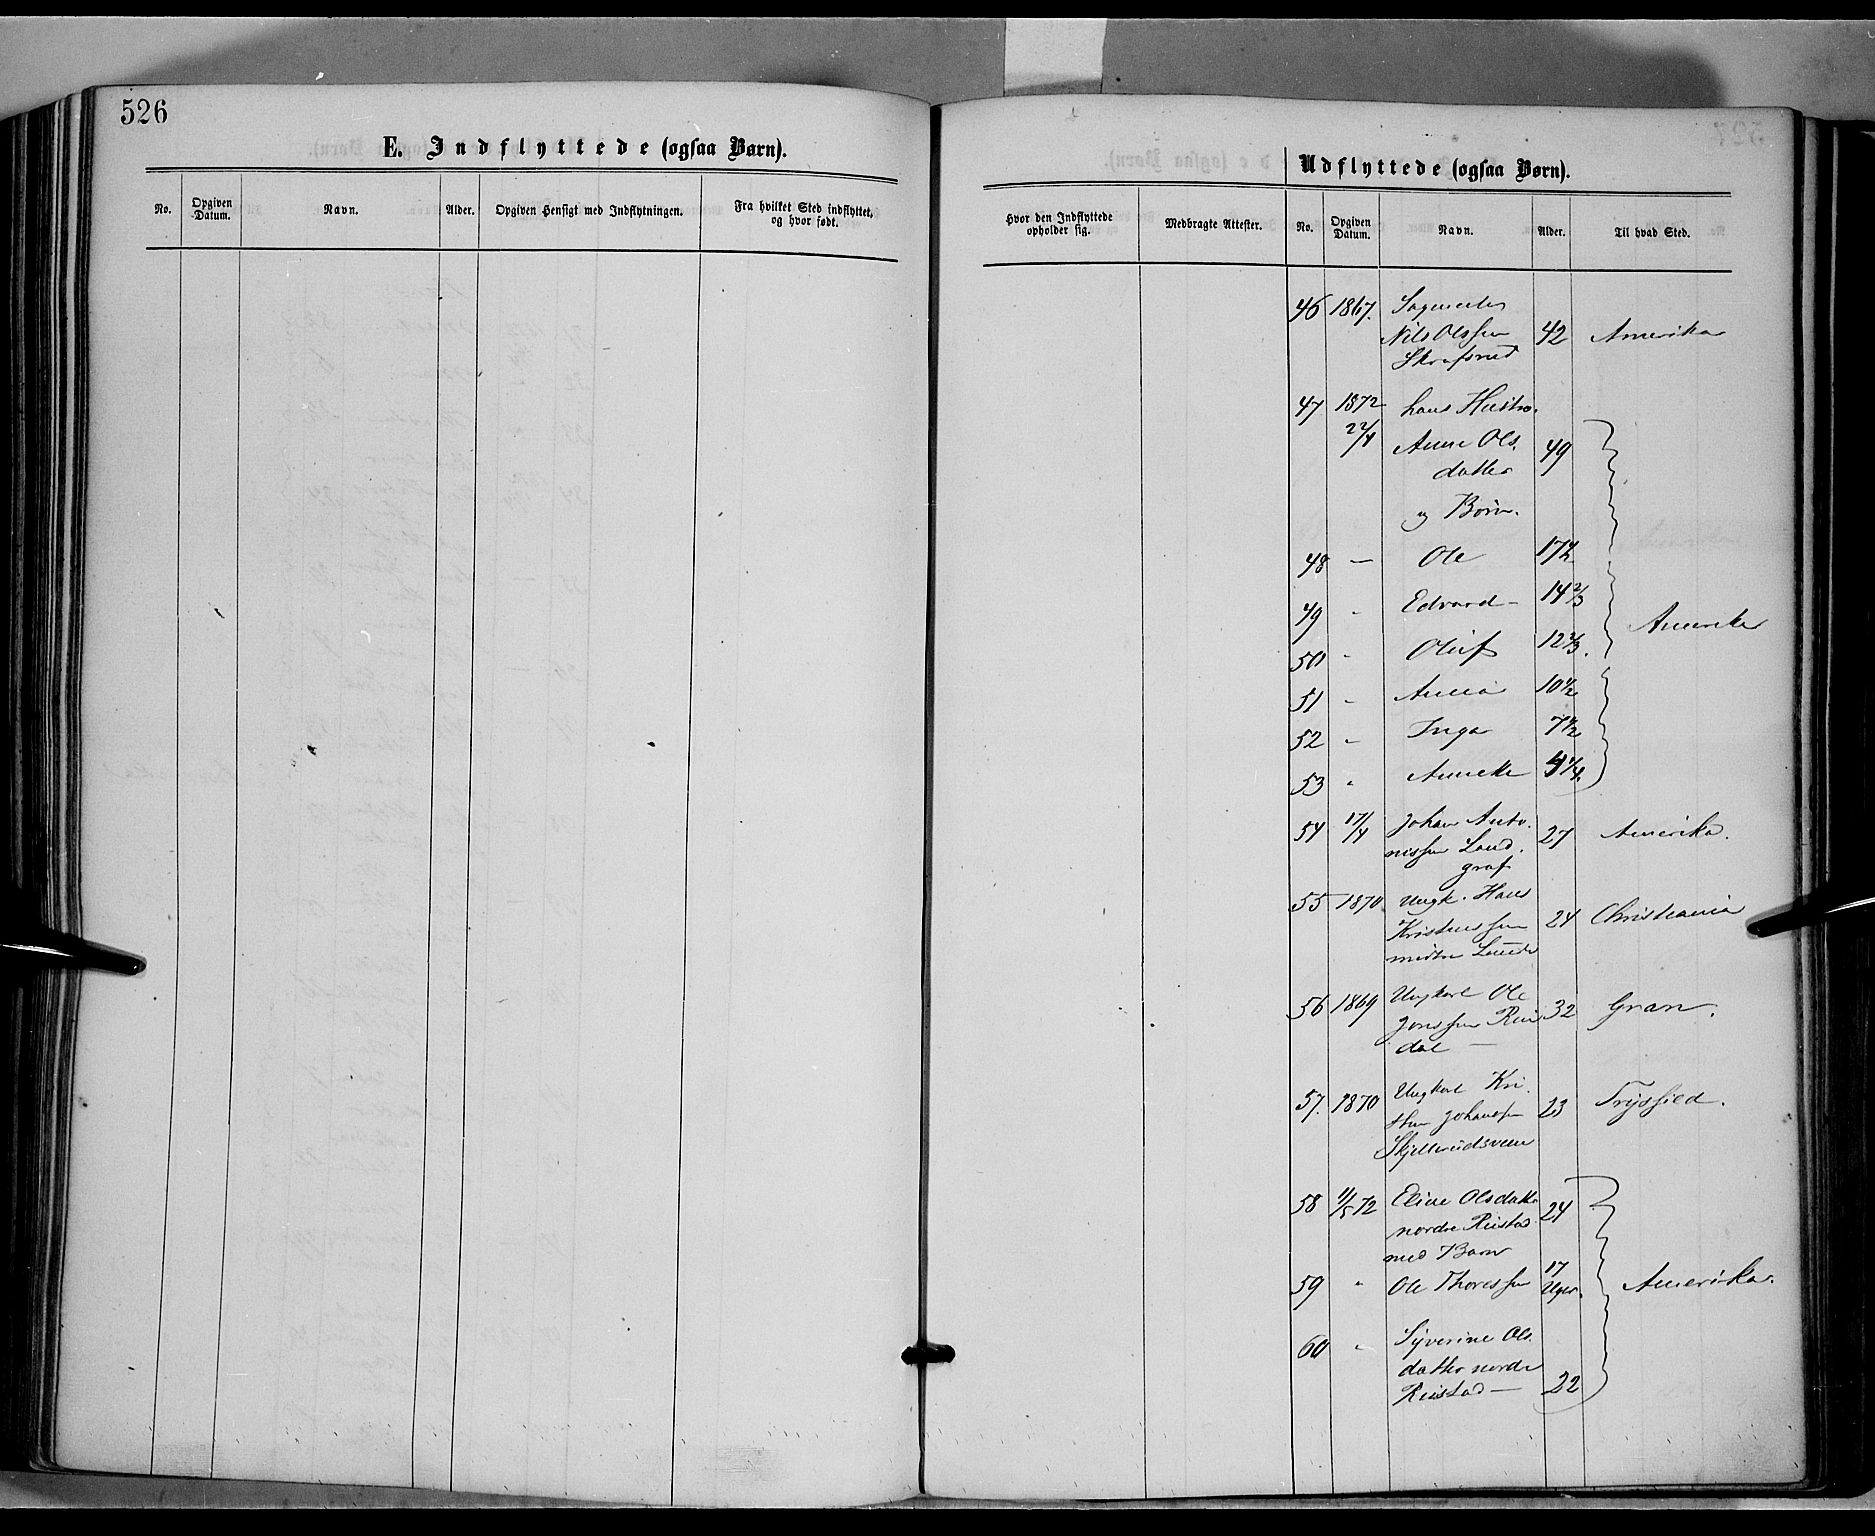 526
E. Indflyttede (ogsaa Børn).
No. Opgiven Datum. Navn. Alder. Opgiven Hensigt med Indflytningen. Fra hvilket Sted indflyttet, og hvor født.
Udflyttede (ogsaa Børn).
Hvor den Indflyttede opholder sig. Medbragte Attester. No. Opgiven Datum. Navn. Alder. Til hvad Sted.
46 1867.
Nils Olssen 42 Amerika
47 1872 hans Hustro.
22/4 Anne Ols. 49
datter
og Børn.
48 — Ole 17½
49 - Edvard - 14 2/3
50 - Oluf 12 2/3. Amerika
51 - Anna 10½
52 - Inga 7½
53 - Annette
54 17/4 Johan Anto.
nissen Land. 27 Amerika.
graf
55 1870 Ungk. Hans
Kristenssen 24 Christiania
midtre Lunde
56 1869 Ungkarl Ole
Jonssen 32 Gran.
dal —
57. 1870 Ungkarl Kri.
sten Johansen 23 Trysild.
58 11/5 72 Eline Olsdatter 24
nordre Reistad
med Barn
17
59 " Ole Thoressen Uger. Amerika.
60 - Syverine Ols.
datter nordre
Reistad — 22